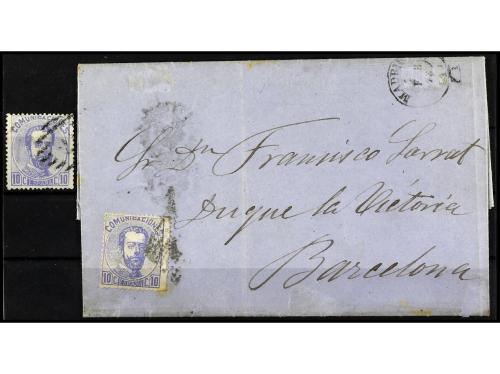 COMUNICACIONES
10 C. C. 10
MADRID
Sr Dn Francisco Sarrat
Duque la Victoria
Barcelona
COMUNICACIONES
10 C. C. 10